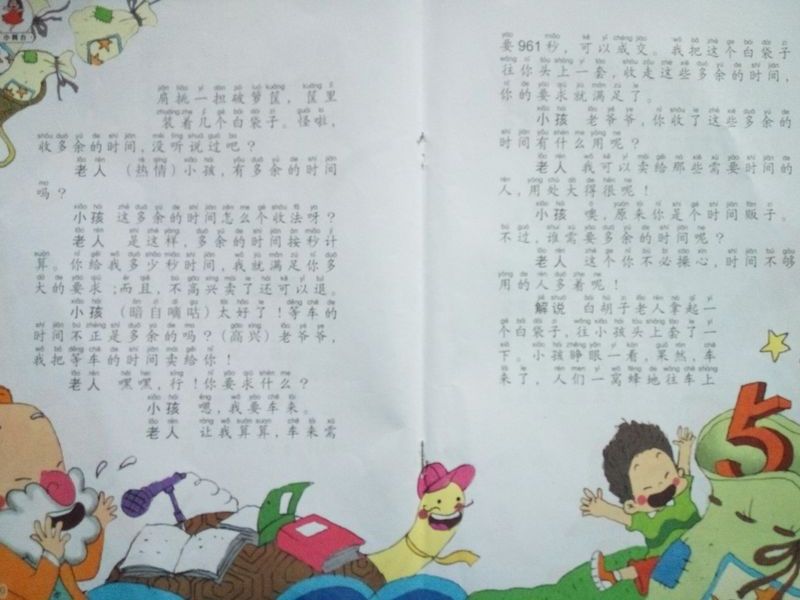 小舞台
肩挑一担破箩筐，筐里
装着几个白袋子。怪啦，
收多余的时间，没听说过吧？
老人 （热情）小孩，有多余的时间
吗？
小孩 这多余的时间怎么个收法呀？
老人 是这样，多余的时间按秒计
算。你给我多少秒时间，我就满足你多
大的要求；而且，不高兴卖了还可以退。
小孩 （暗自嘀咕）太好了！等车的
时间不正是多余的吗？（高兴）老爷爷，
我把等车的时间卖给你！
老人 嘿嘿，行！你要求什么？
小孩 嗯，我要车来。
老人 让我算算，车来需
要961秒，可以成交。我把这个白袋子
往你头上一套，收走这些多余的时间，
你的要求就满足了。
小孩 老爷爷，你收了这些多余的
时间有什么用呢？
老人 我可以卖给那些需要时间的
人，用处大得很呢！
小孩 噢，原来你是个时间贩子。
不过，谁需要多余的时间呢？
老人 这个你不必操心，时间不够
用的人多着呢！
解说 白胡子老人拿起一
个白袋子，往小孩头上套了一
下。小孩睁眼一看，果然，车
来了，人们一窝蜂地往车上
5